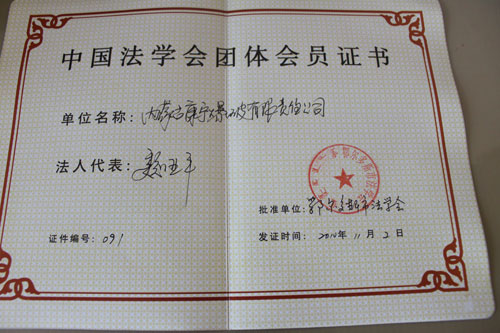 中国法学会团体会员证书
单位名称：内蒙古康宁爆破有限责任公司
法人代表：
鄂尔多斯市法学会
批准单位：鄂尔多斯市法学会
证件编号：091
发证时间：2010年11月2日